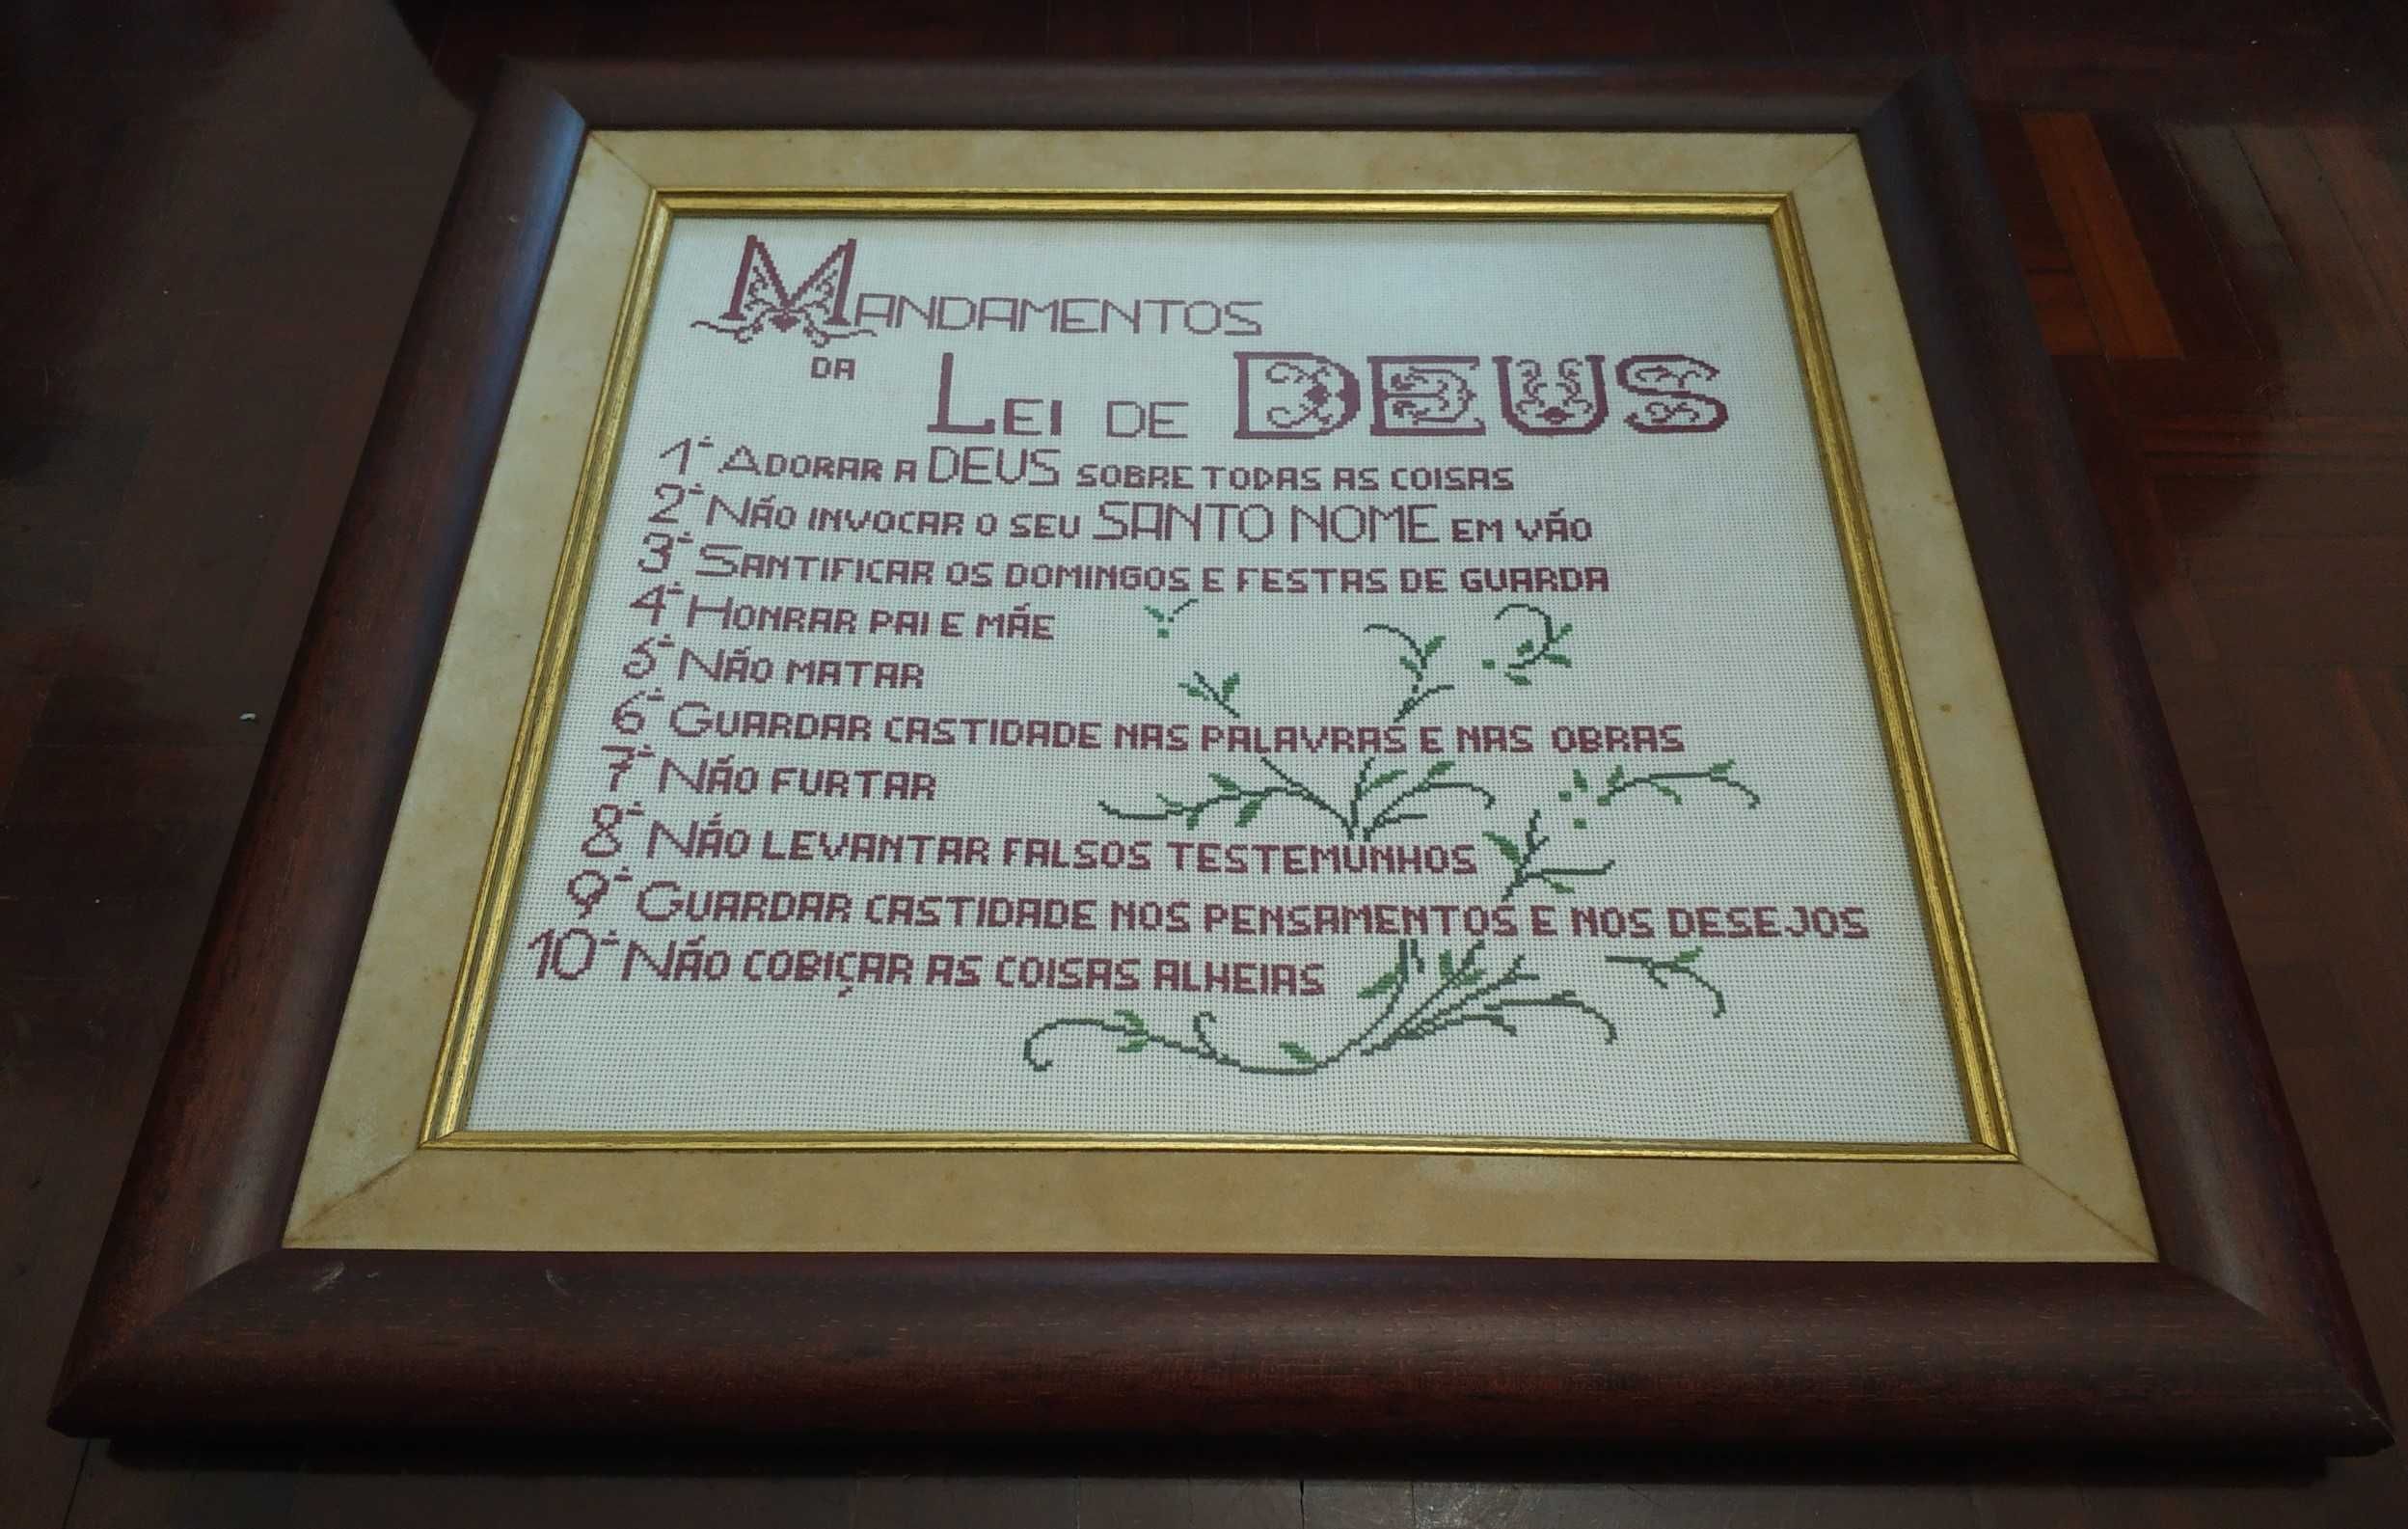 MANDAMENTOS
DA LEI DE DEUS
1º ADORAR A DEUS SOBRE TODAS AS COISAS
2º NÃO INVOCAR O SEU SANTO NOME EM VÃO
3º SANTIFICAR OS DOMINGOS E FESTAS DE GUARDA
4º HONRAR PAI E MÃE
5º NÃO MATAR
6º GUARDAR CASTIDADE NAS PALAVRAS E NAS OBRAS
7º NÃO FURTAR
8º NÃO LEVANTAR FALSOS TESTEMUNHOS
9º GUARDAR CASTIDADE NOS PENSAMENTOS E NOS DESEJOS
10º NÃO COBIÇAR AS COISAS ALHEIAS